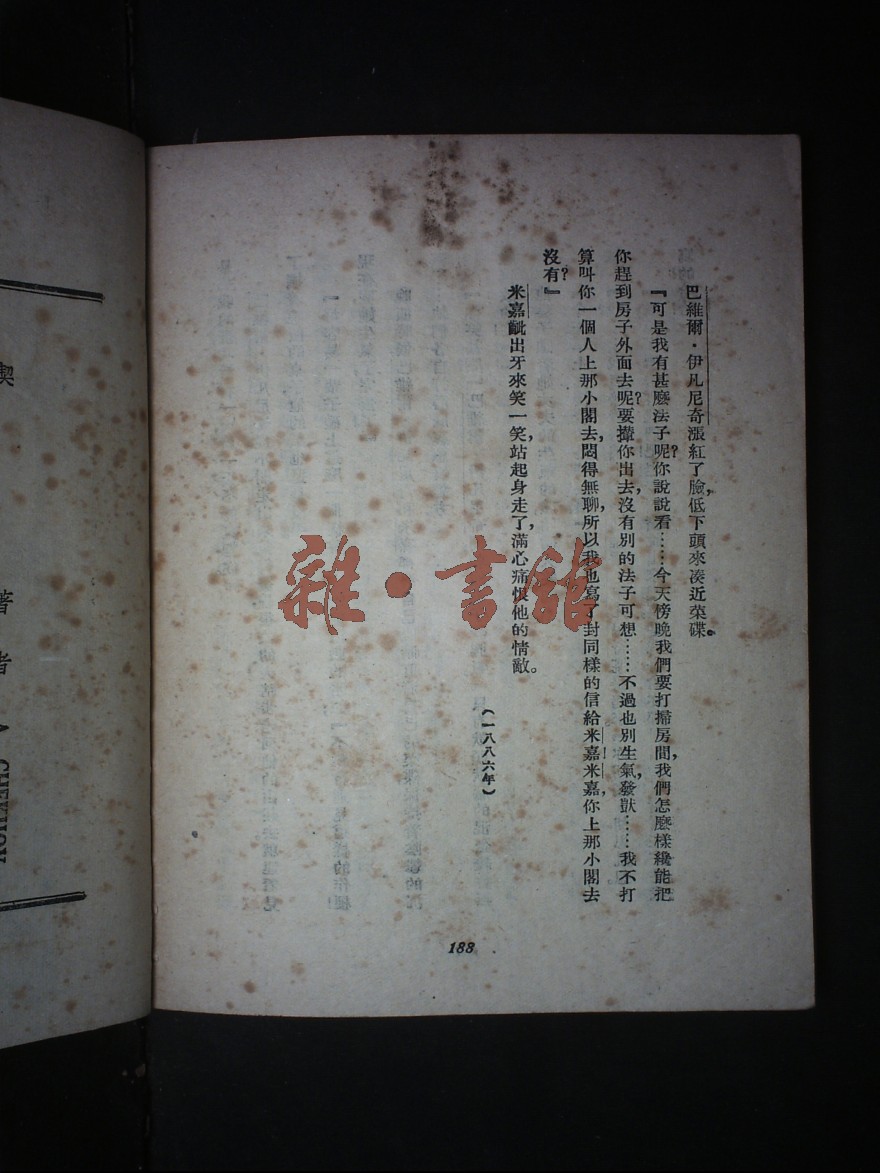 巴維爾·伊凡尼奇漲紅了臉，低下頭來湊近菜碟。
『可是我有甚麼法子呢？你說說看……今天傍晚我們要打掃房間，我們怎麼樣纔能把
你趕到房子外面去呢？要攆你出去，沒有別的法子可想……不過也別生氣，發獃……我不打
算叫你一個人上那小閣去，悶得無聊，所以我也寫了封同樣的信給米嘉米嘉你上那小閣去
沒有？』
米嘉齜出牙來笑一笑，站起身走了，滿心痛恨他的情敵。
（一八八六年）
188
雜·書館
契
著者
A
CHEKHOV